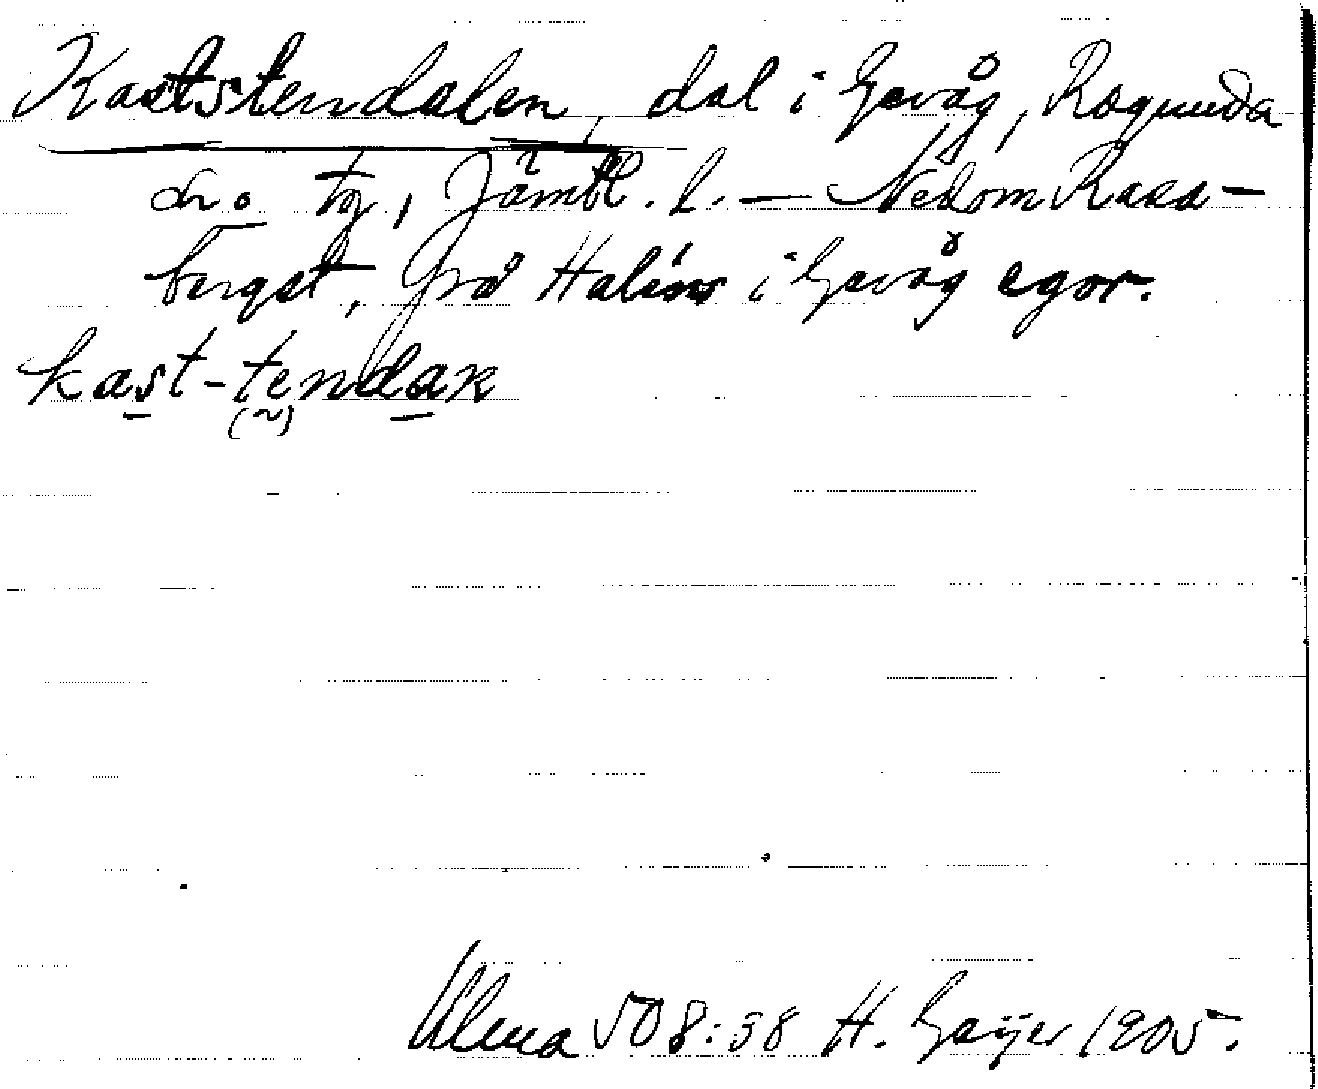 Kaststendalen, dal i Gevåg, Ragunda
sn o tg, Jämtl. l. — Nedom Rasa-
berget, på Haléns i Gevåg egor.
kast-tendaɴ
(~)
Ulma 508:38 H. Geijer 1905.